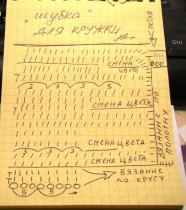 "шубка"
для кружки
смена
цвета
смена цвета
смена цвета
смена цвета
вязание
по кругу
вязание по
полотну
петля